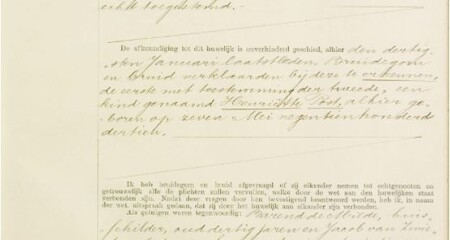 echt toegestemd.-
De afkondiging tot dit huwelijk is onverhinderd geschied, alhier den dertig-
sten Januari laatstleden. Bruidegom
en bruid verklaarden bij deze te erkennen,
de eerste met toestemming der tweede, een
kind genaamd Henriëtte Bot, alhier ge-
boren op zeven Mei negentienhonderd
dertien.
Ik heb bruidegom en bruid afgevraagd of zij elkander nemen tot echtgenooten en
getrouwelijk alle de plichten zullen vervullen, welke door de wet aan den huwelijken staat
verbonden zijn. Nadat deze vragen door hen bevestigend beantwoord werden, heb ik, in naam
der wet, uitspraak gedaan, dat zij door het huwelijk aan elkander zijn verbonden.
Als getuigen waren tegenwoordig: Barend de Milde, huis-
schilder, oud dertig jaren en Jacob van